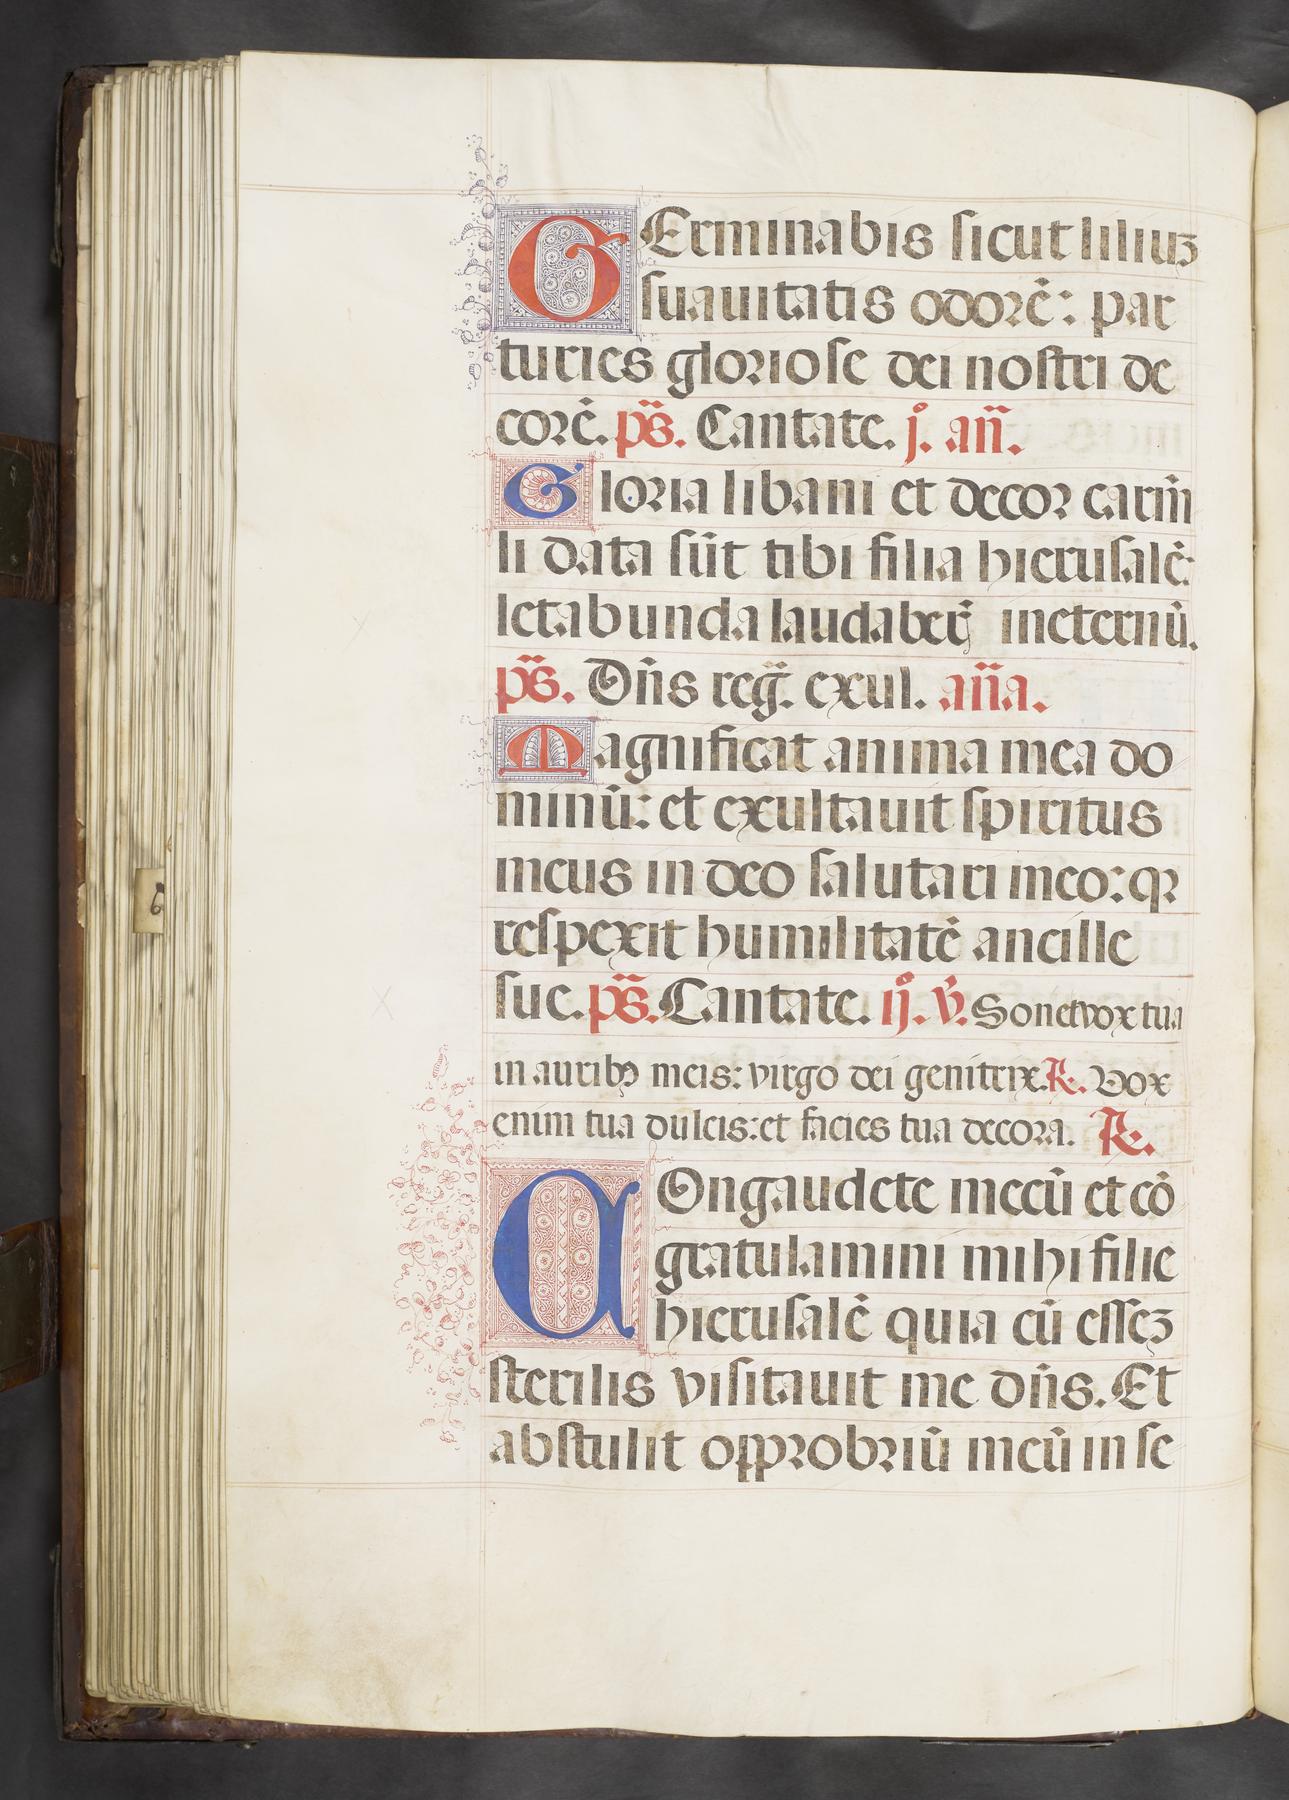 GErminabis sicut liliuz
suauitatis odorē: par
turies gloriose dei nostri de
corē. ps̄. Cantate. j̊. an̄.
Gloria libani et decor carm̄
li data sūt tibi filia hierusalē:
letabunda laudaberꝭ ineternū.
ps̄. Dn̄s reḡ. exul. an̄a.
Magnificat anima mea do
minū: et exultauit spiritus
meus in deo salutari meo: qꝛ
respexit humilitatē ancille
sue. ps̄. Cantate. ij̊. v̊. Sonet vox tua
in auribꝰ meis: virgo dei genitrix. R. Vox
enim tua dulcis: et facies tua decora. R.
COngaudete mecū et cō
gratulamini mihi filie
hierusalē quia cū essez
sterilis visitauit me dn̄s. Et
abstulit opprobriū meū in se
6